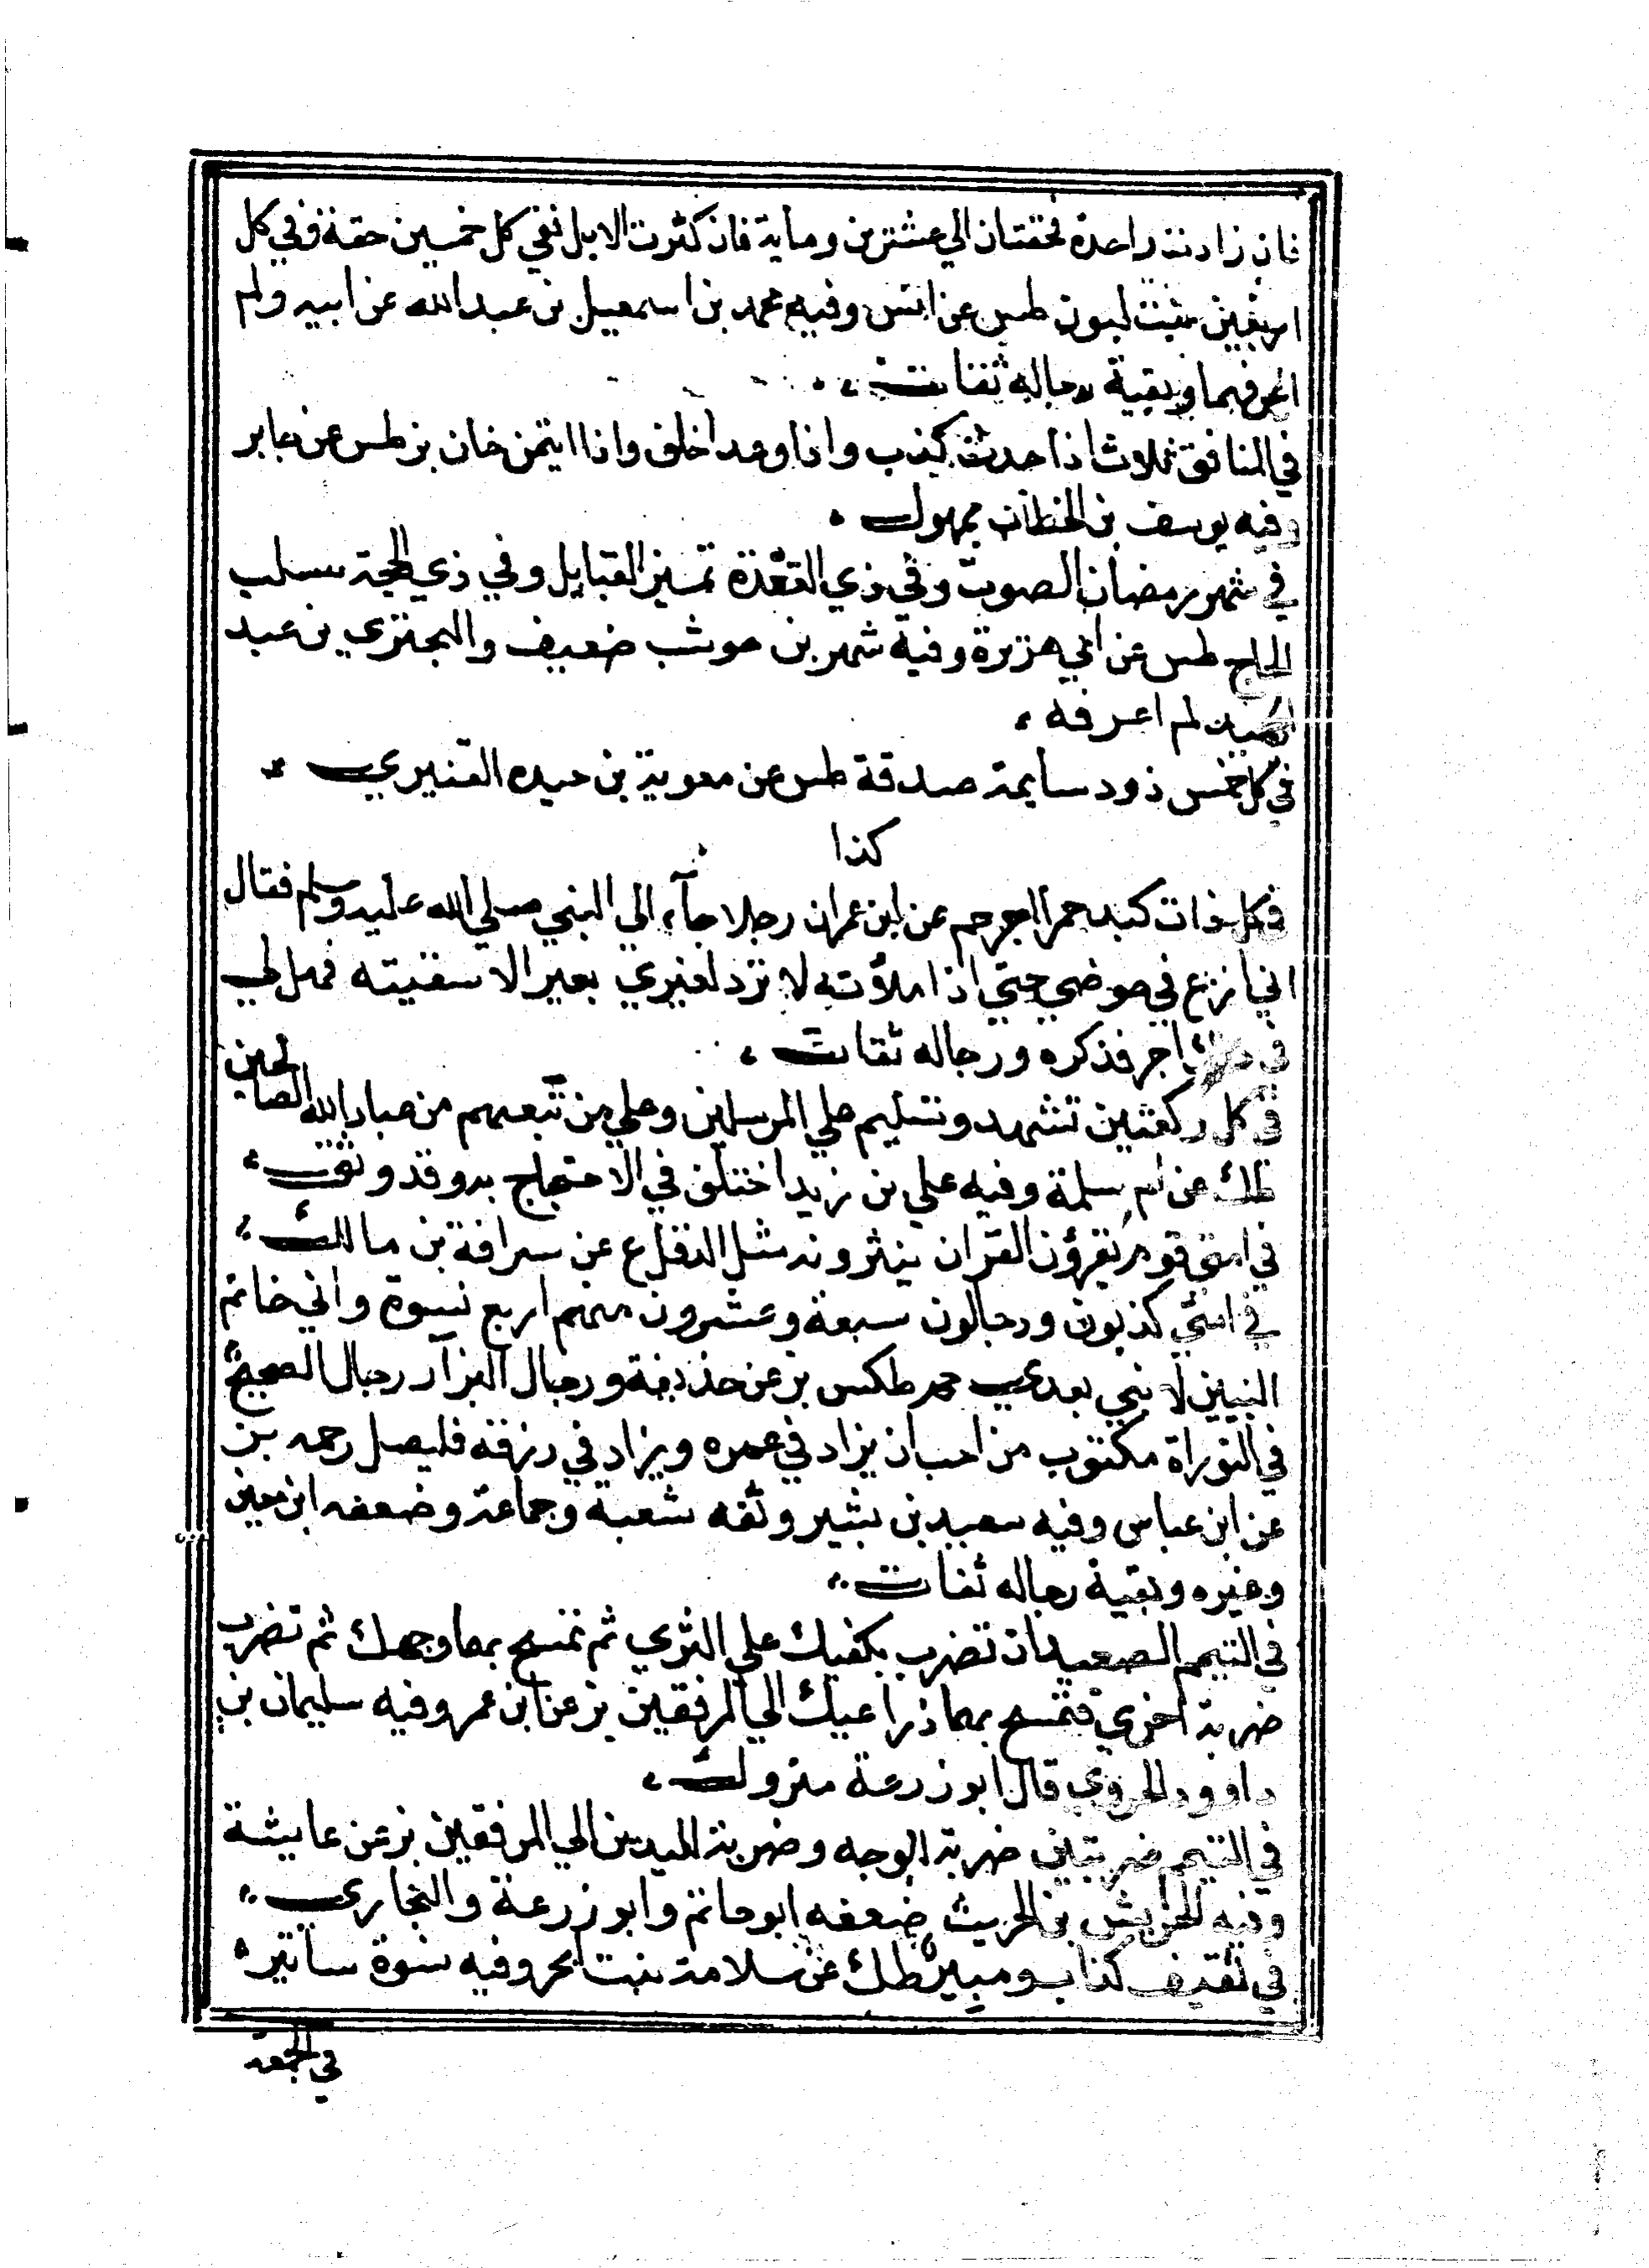 فان زادت واحدة فحقتان الي عشترين وماية فان كثرت الابل ففي كل خمسين حقة وفي كل
اربعين بنت لبون طس عن انس وفيه محمد بن اسمعيل بن عبد الله عن ابيه ولم
اعرفهما وبقية رجاله ثقات
في المنافق ثلاث اذا حدث كذب واذا وعد اخلف واذا ايتمن خان بز طس عن جابر
وفيه يوسف بن الخطاب مجهول
في شهر رمضان الصوت وفي ذي القعدة تميز القبايل وفي ذي الحجة سلب
الحاج طس عن ابي هريرة وفيه شهر بن حوشب ضعيف والبحتري بن عبد
الحميد لم اعرفه
في كل خمس ذود سايمة صدقة طس عن معوية بن حيده القشيري
كذا
في كل ذات كبد حرا اجر حم عن ابن عمران رجلا جآء الي النبي صلي الله عليه وسلم فقال
اني انزع في حوضي حتي اذا ملأته لا ترد لغيري بعير الا سقيته فهل لي
في ذلك اجر فذكره ورجاله ثقات
في كل ركعتين تشهد وتسليم علي المرسلين وعلي من تبعهم من عباد الله الصالحين
طك عن ام سلمة وفيه علي بن زيد اختلف في الاحتجاج به وقد وثق
في امتي قوم يقرؤن القران ينثرونه مثل الدقل ع عن سراقة بن مالك
في امتي كذبون ودجالون سبعة وعشرون منهم اربع نسوة واني خاتم
النبيين لا نبي بعدي حم طكس بز عن حذيفة ورجال البزار رجال الصحيح
في التوراة مكتوب من احب ان يزاد في عمره ويزاد في رزقه فليصل رحمه بز
عن ابن عباس وفيه سعيد بن بشير وثقه شعبة وجماعة وضعفه ابن معين
وغيره وبقية رجاله ثقات
في التيمم الصعيد ان تضرب بكفيك علي الثري ثم تمسح بهما وجهك ثم تضرب
ضربة اخري فتمسح بهما ذراعيك الي المرفقين بز عن ابن عمر وفيه سليمان بن
داوود قال ابو زرعة متروك
في التيمم ضربتين ضربة الوجه وضربة اليدين الي المرفقين بز عن عايشة
وفيه الحريش بن الخريث ضعفه ابو حاتم وابو زرعة والبخاري
في ثقيف كذاب ومبير طك عن سلامة بنت الحر وفيه نسوة ساتير
في الجمعة